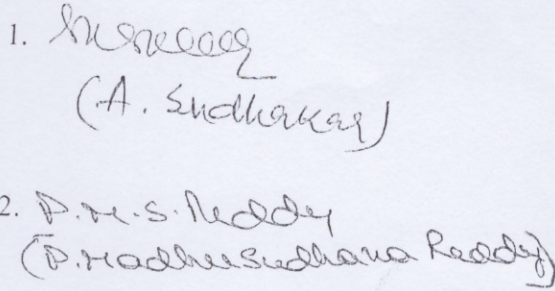 1.
(A. Sudhakar)
2. P.M.S. Reddy
(P. Madhusudhana Reddy)